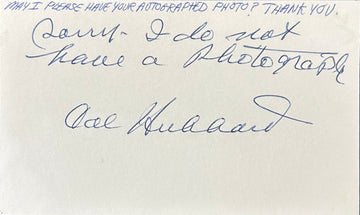 MAY I PLEASE HAVE YOUR AUTOGRAPHED PHOTO? THANK YOU.
Sorry - I do not
have a photograph
Cal Hubbard